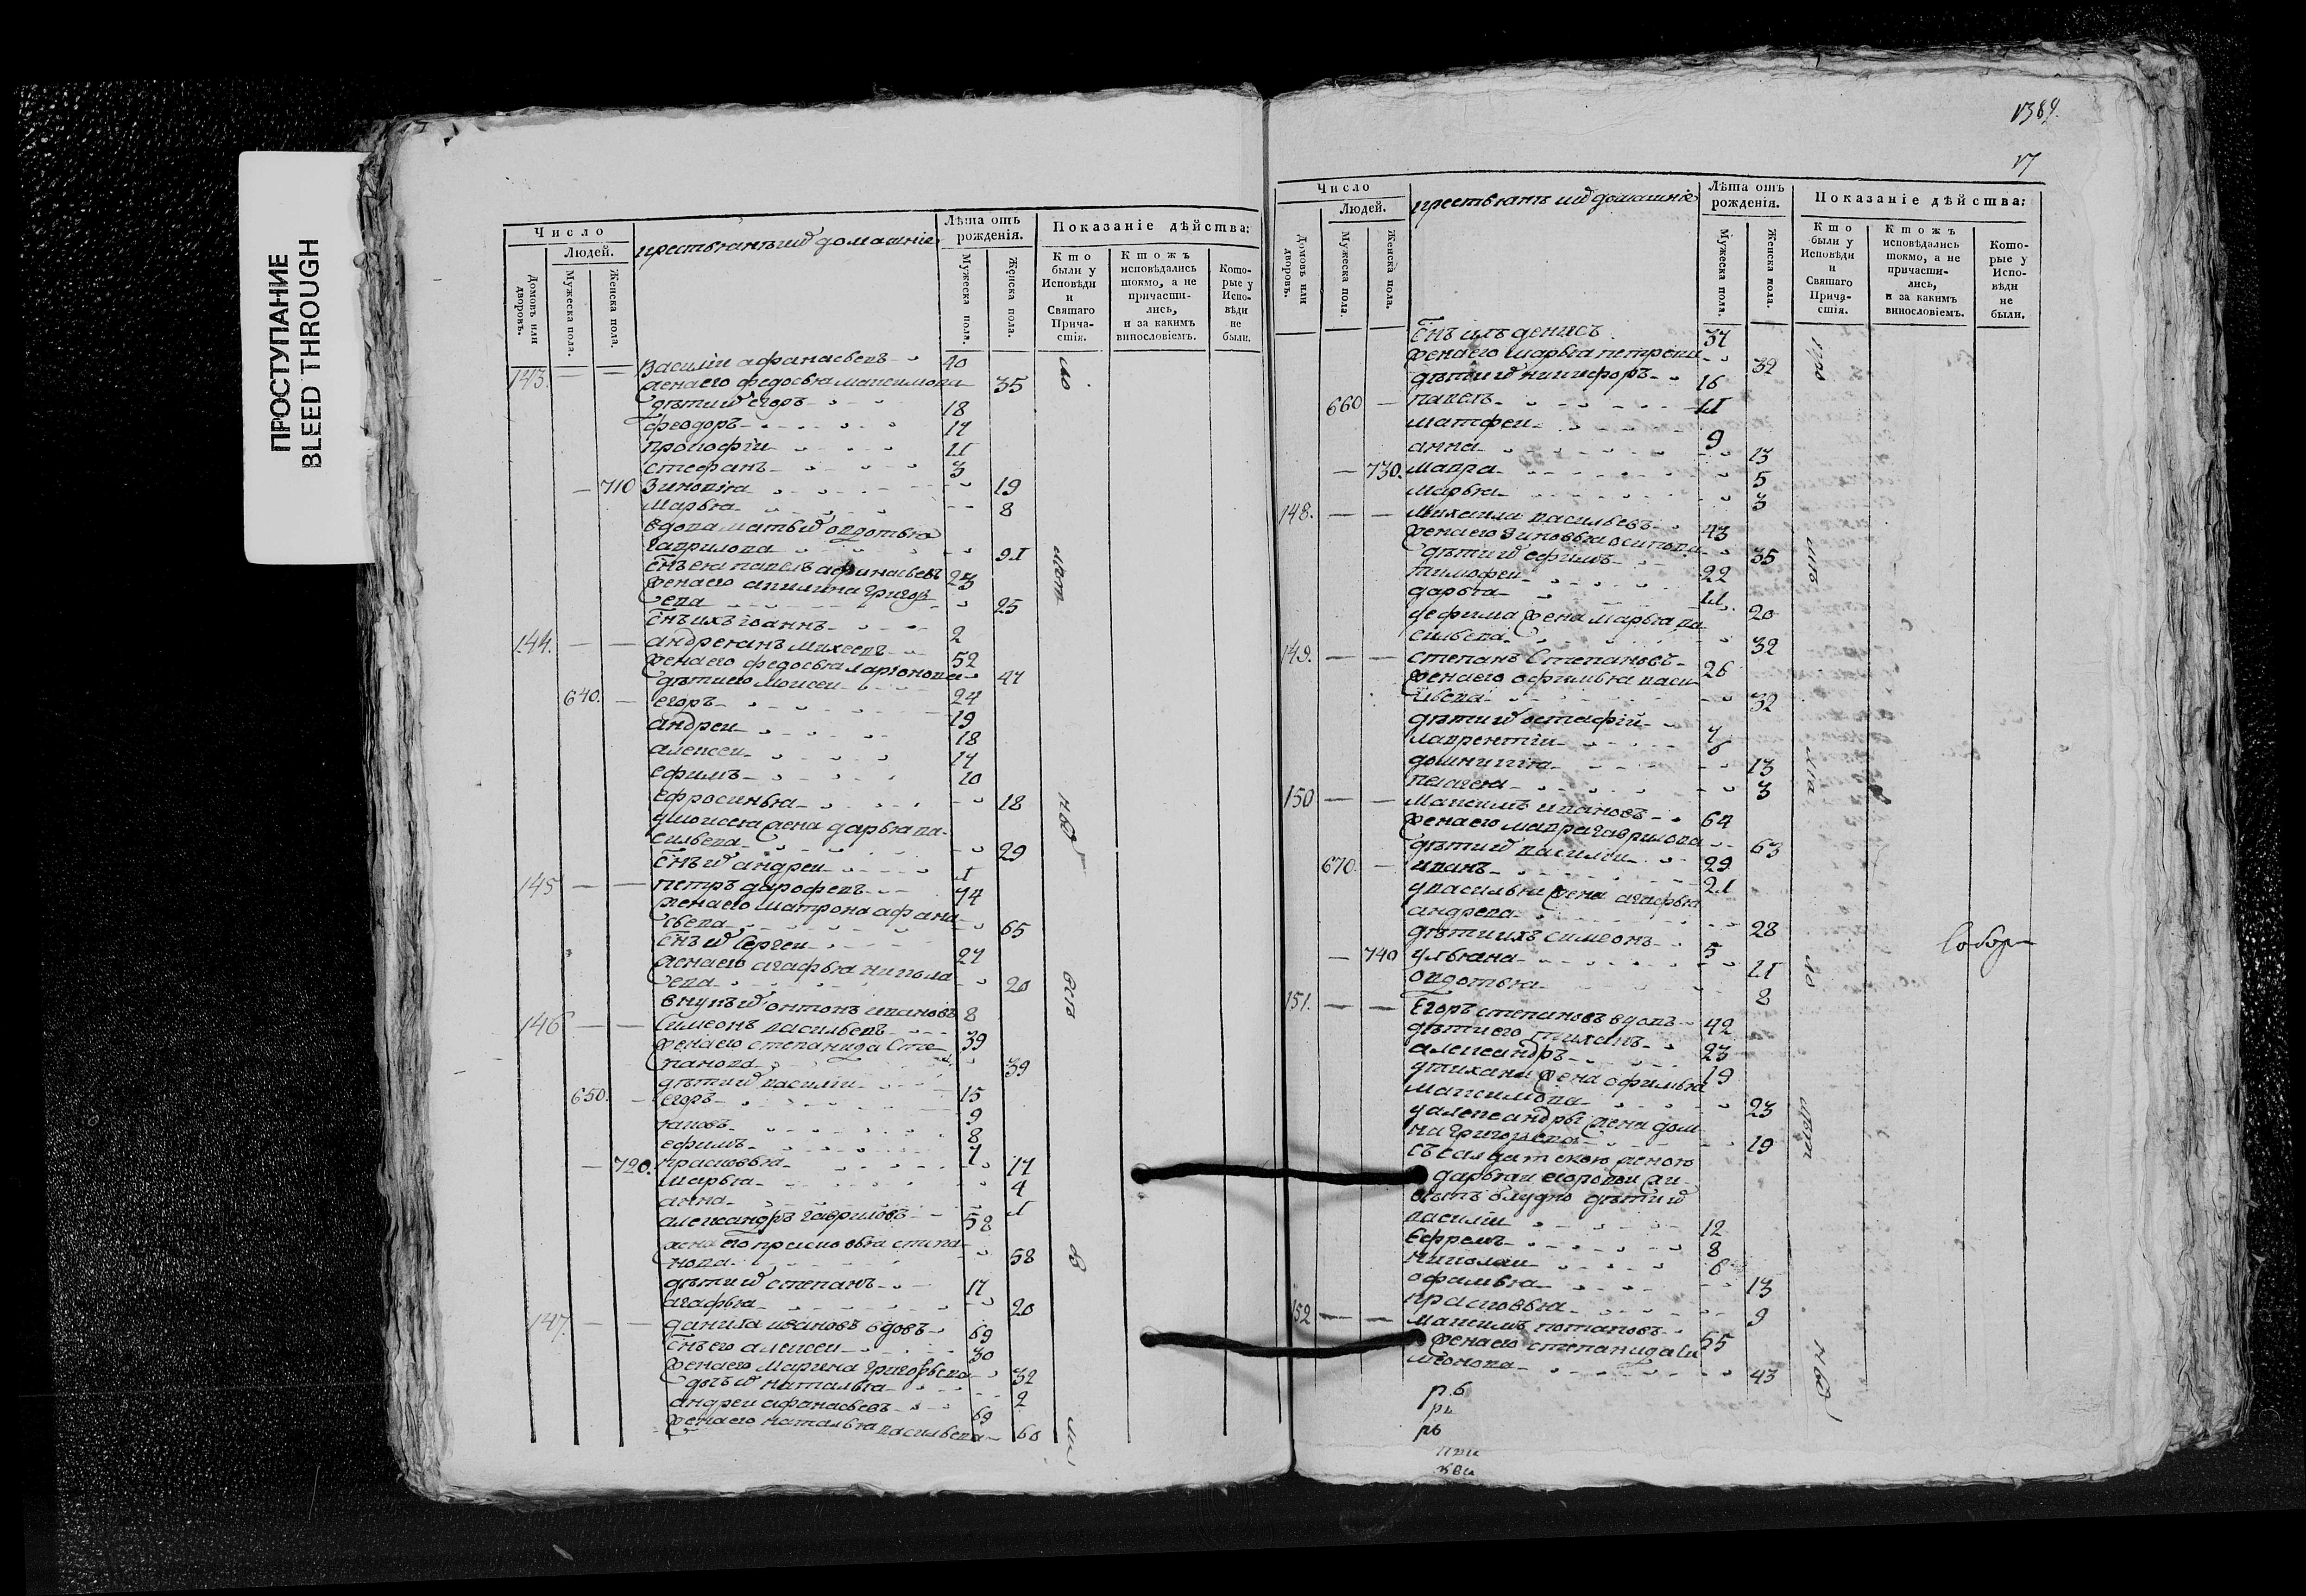 ПРОСТУПАНИЕ
BLEED THROUGH
Число
Людей.
Домовъ или дворовъ.
Мужеска пола.
Женска пола.
крестьянъ и домашніе
Лѣта отъ рожденія.
Мужеска пола.
Женска пола.
Показаніе дѣйства:
Кто были у Исповѣди и Святаго Прича-стія.
Ктожъ исповѣдались токмо, а не причасти-лись, и за какимъ винословіемъ.
Кото-рые у Испо-вѣди не были.
143. — — Василіи афанасьевъ 40
жена его федосья максимова 35
дѣти егоръ 18
феодоръ 17
прокофіи 11
стефанъ 3
— 710 Зиновія 19
марья 8
вдова мать овдотья
гаврилова 91
снъ ея павелъ афанасьевъ 25
жена его акилина григор
ева 25
снъ ихъ іоаннъ 2
144. — — андреянъ михеевъ 52
жена его федосья ларіонова 47
дѣти его моисеи 24
640. — егоръ 19
андреи 18
алексеи 17
ефимъ 10
ефросинья 18
у моисея жена дарья ва-
сильева 29
снъ андреи 1
145 — — петръ дорофеевъ 74
жена его матрона афана
сьева 65
снъ Сергеи 27
жена его агафья никола
ева 20
внукъ онтонъ ивановъ 8
146 — — Симеонъ васильевъ 39
жена его степанида Сте
панова 39
дѣти василіи 15
650. — егоръ 9
яковъ 8
ефимъ 7
— 720. прасковья 17
марья 4
анна 1
александръ гавриловъ 58
жена его прасковья степа
нова 58
дѣти степанъ 17
агафья 20
147. — — данила ивановъ вдовъ 69
снъ его алексеи 30
жена его марина григорьева 32
дочь наталья 2
андреи афанасьевъ 69
жена его наталья васильева 60
1389.
17
Число
Людей.
Домовъ или дворовъ.
Мужеска пола.
Женска пола.
крестьянъ и домашніе
Лѣта отъ рожденія.
Мужеска пола.
Женска пола.
Показаніе дѣйства:
Кто были у Исповѣди и Святаго Прича-стія.
Ктожъ исповѣдались токмо, а не причасти-лись, и за какимъ винословіемъ.
Кото-рые у Испо-вѣди не были.
снъ ихъ денисъ 37
жена его марья петрова 32
дѣти никифоръ 16
660 — павелъ 11
матфеи 9
анна 13
— 730. мавра 5
марья 3
148. — — михаила васильевъ 43
жена его зиновья осипова 35
дѣти ефимъ 22
тимофеи 11
дарья 20
у ефима жена марья ва
сильева 32
149. — — степанъ Степановъ 26
жена его офимья васи
льева 32
дѣти остафіи 7
лаврентіи 6
домникія 13
пелагея 3
150 — — максимъ ивановъ 64
жена его мавра гаврилова 63
дѣти василіи 29
670. — иванъ 21
у василья жена агафья
андреева 28
дѣти ихъ симеонъ 5
— 740 ульяна 11
овдотья 2
151. — — Егоръ степановъ вдовъ 42
дѣти его тиханъ 23
александръ 19
у тихана жена офимья
максимова 23
у александры жена дом
на григорьева 19
съ салдатскою женою
дарьеи егоровои
блудно дѣти
василіи 12
Ефремъ 8
николаи 6
офимья 13
прасковья 9
152 — — максимъ потаповъ 55
жена его степанида Си
меонова 43